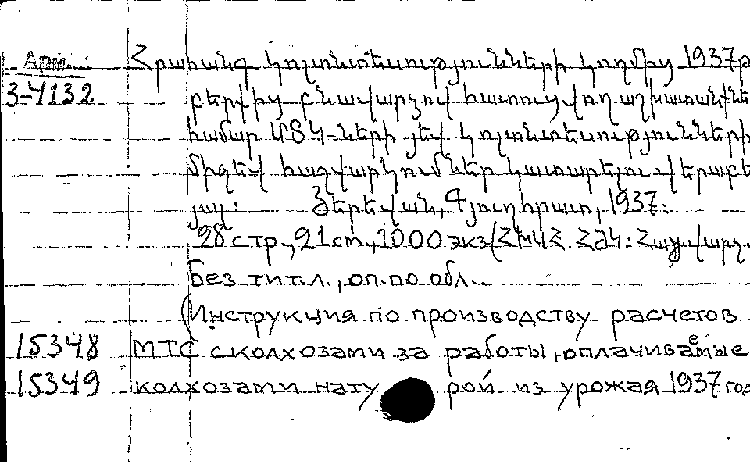 Арм. Հրահանգ կոլտնտեսությունների կողմից 1937թ
3-4132 բերքից բնավարձով հատուցվող աշխատանքնե
համար ՄՏԿ-ների յեվ կոլտնտեսությունների
միջեվ հաշվարկումներ կատարելու վերաբե
յալ: Յերեվան, Գյուղհրատ, 1937:
28 стр., 21 см., 1000 экз. (ՀԽՍՀ ՀԺԿ: Հայ. վարչ.
Без тит. л., оп. по обл.
(Инструкция по производству расчетов
15348 МТС с колхозами за работы, оплачиваемые
15349 колхозами нату рой из урожая 1937 год